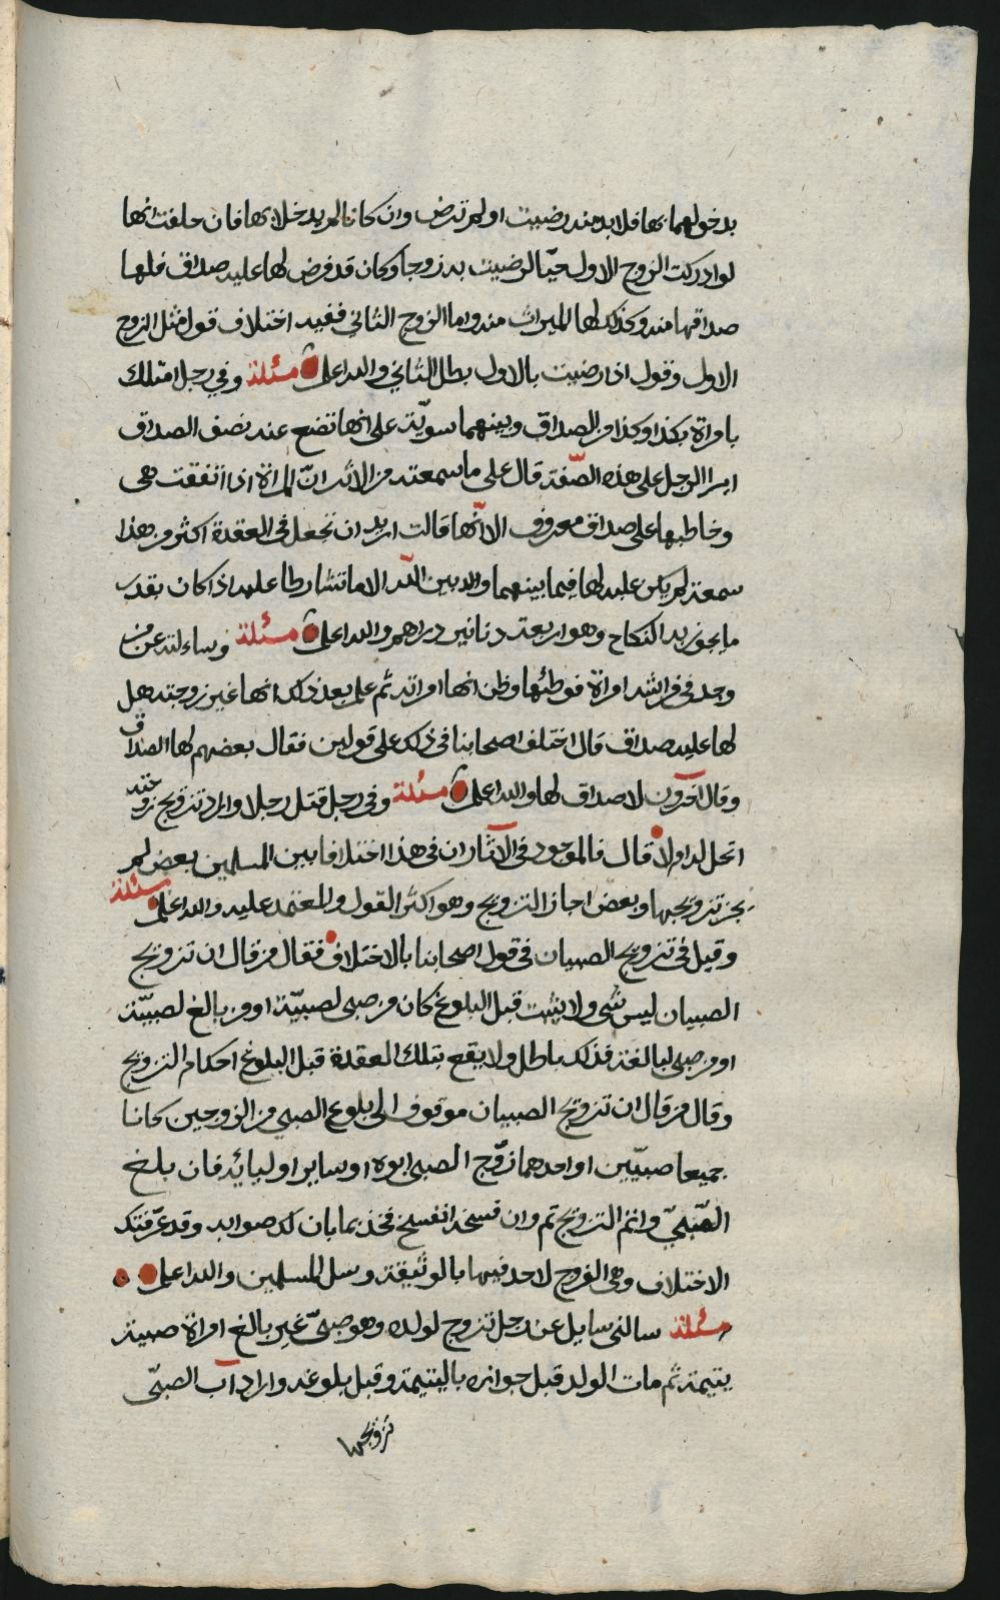 بدخولهما بها فلا بد منه رضيت او لم ترض وان كانا لم يدخلا بها فان حلفت انها
لو ادركت الزوج الاول حيّا لرضيت به زوجا وكان قد فرض لها عليه صداق فلها
صداقها منه وكذلك لها الميراث منه واما الزوج الثاني ففيه اختلاف قول مثل الزوج
الاول وقول اذا رضيت بالاول بطل الثاني والله اعلم مسئلة وفي رجل امتلك
بامراة بكذا وكذا من الصداق وبينهما سويّة على انها تضع عنه نصف الصداق
ايبرا الرجل على هذه الصّفة قال على ما سمعته من الاثر انّ المراة اذا اتفقت هي
وخاطبها على صداق معروف الا انّها قالت اريد ان تجعل في العقدة اكثر من هذا
سمعة لم يكن عليه لها فيما بينهما وبين اللّه الا ما تشارطا عليه اذا كان بقدر
ما يجوز به النكاح وهو اربعة دنانير دراهم والله اعلم مسئلة وساءلته عن من
وجد في فراشه امراة فوطئها وظن انها امراته ثم علم بعد ذلك انها غير زوجته هل
لها عليه صداق قال اختلف اصحابنا في ذلك على قولين فقال بعضهم لها الصداق
وقال آخرون لا صداق لها والله اعلم مسئلة وفي رجل قتل رجلا واراد تزويج زوجته
اتحل له او لا قال فالموجود في الآثار ان في هذا اختلافا بين المسلمين بعض لم
يجز تزويجها وبعض اجاز التزويج وهو اكثر القول والمعتمد عليه والله اعلم مسئلة
وقيل في تزويج الصبيان في قول اصحابنا بالاختلاف فقال من قال ان تزويج
الصبيان ليس شي ولا يثبت قبل البلوغ كان من صبي لصبيّة او من بالغ لصبيّة
او من صبي لبالغة فذلك باطل ولا يقع بتلك العقدة قبل البلوغ احكام التزويج
وقال من قال ان تزويج الصبيان موقوف الى بلوغ الصبي من الزوجين كانا
جميعا صبيّين او احدهما زوّج الصبي ابوه او ساير اوليائه فان بلغ
الصّبيّ واتم التزويج تم وان فسخه انفسخ فخذ بما بان لك صوابه وقد عرّفتك
الاختلاف وهي الفروج لاحد فيها بالوثيقة وسل المسلمين والله اعلم
مسئلة سالني سايل عن رجل تزوج لولده وهو صبيّ غير بالغ امراة صبية
يتيمة ثم مات الولد قبل جوازه باليتيمة وقبل بلوغه واراد آب الصبيّ
تزويجها